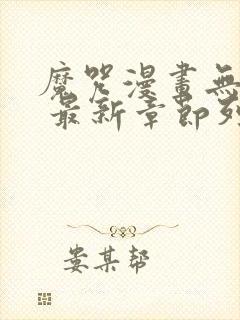 魔咒漫畫無
最新章節列
娄某帮